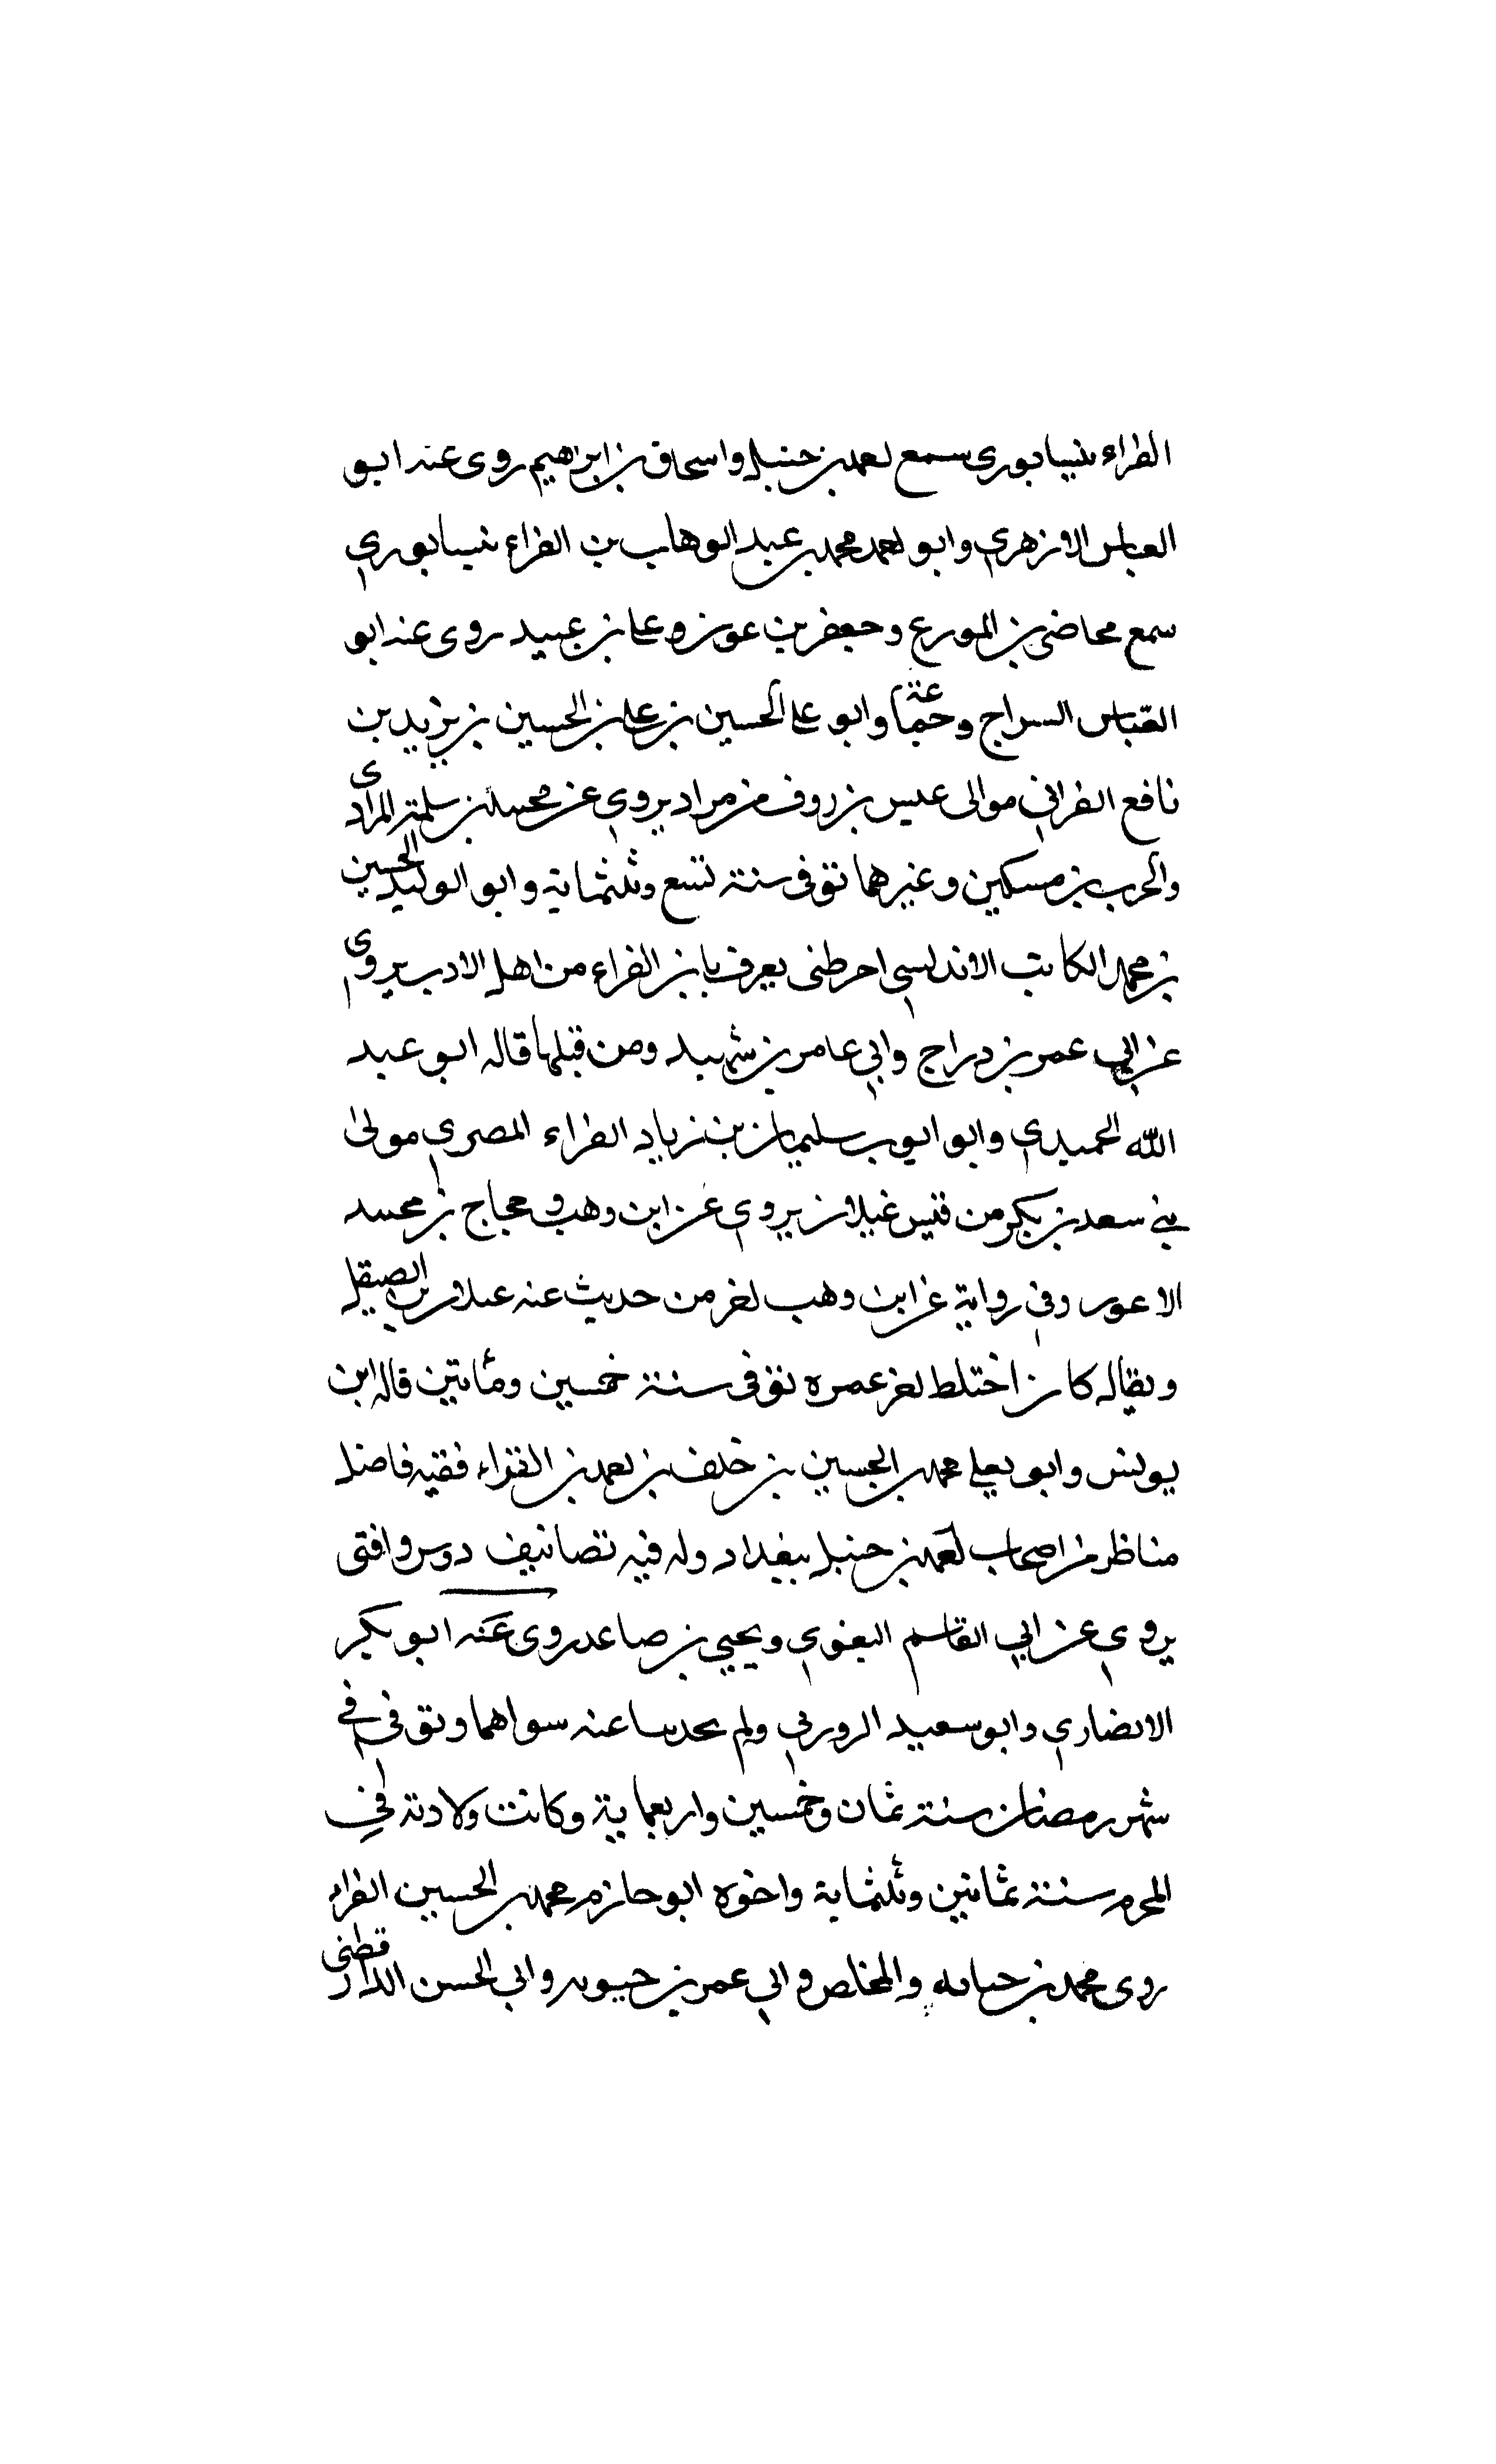 الفراء نيسابوري سمع احمد بن حنبل واسحاق بن ابراهيم روى عنه ابو
العباس الازهري وابو احمد محمد بن عبد الوهاب بن الفراء نيسابوري
سمع محاضر بن المورع وجعفر بن عون وعلي بن عبيد روى عنه ابو
العباس السراج وجماعة وابو علي الحسين بن علي بن الحسين بن يزيد بن
نافع الفراني موالى عيسى بن روف من مراد يروي عن محمد بن سلمة المرادي
والحرب بن مسكين وغيرهما توفى سنة تسع وثلثماية وابو الوليد الحسين
بن محمد الكاتب الاندلسي يعرف بابن الفراء من اهل الادب يروي
عن ابي عمر بن دراج وابي عامر بن شهيد ومن قبلها قاله ابو عبد
الله الحميدي وابو ايوب سليمان بن زياد الفراء المصري مولى
بني سعد بن بكر من قيس غيلان يروي عن ابن وهب وحجاج بن محمد
الاعور وفي رواية عن ابن وهب من حديث عنه علان بن الصيقل
ويقال كان اختلط عمره توفى سنة خمسين ومأتين قاله ابن
يونس وابو يعلي محمد بن الحسين بن خلف بن احمد بن الفراء فقيه فاضل
مناظر من اصحاب احمد بن حنبل ببغداد وله فيه تصانيف درس وافتى
يروي عن ابي القاسم البغوي ويحيي بن صاعد روى عنه ابو بكر
الانضاري وابو سعيد الزوزني ولم يحدثنا عنه سواهما وتوفي في
شهر رمضان سنة ثمان وخمسين واربعماية وكانت ولادته في
المحرم سنة ثمانين وثلثماية واخوه ابو حازم محمد بن الحسين الفراء
روى محمد بن حبابه والمخلص وابي عمر بن حيويه وابي الحسن الدارقطني